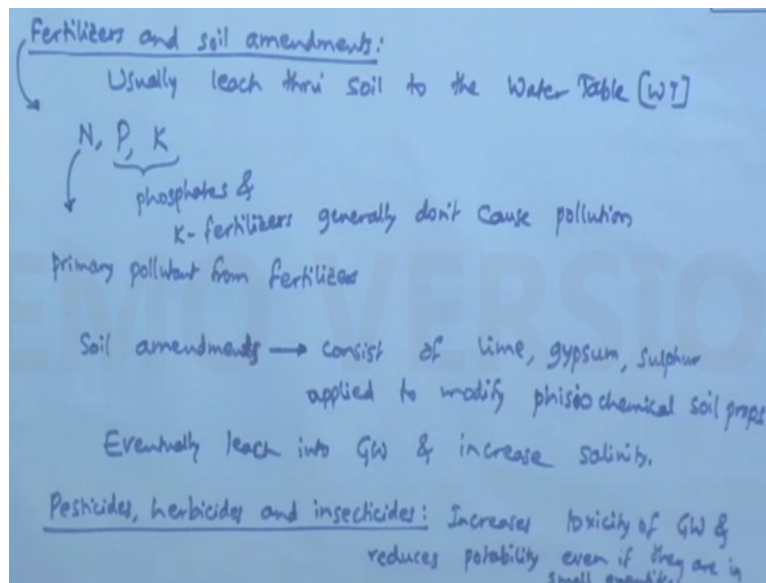 Fertilizers and soil amendments:
Usually leach thru' soil to the Water Table [WT]
N, P, K
phosphates &
K- fertilizers generally don't cause pollution
primary pollutant from fertilizers
Soil amendments → consist of lime, gypsum, sulphur
applied to modify phisio chemical soil props
Eventually leach into GW & increase salinity.
Pesticides, herbicides and insecticides: Increases toxicity of GW &
reduces potability even if they are in
small quantities
EMO VERSIO